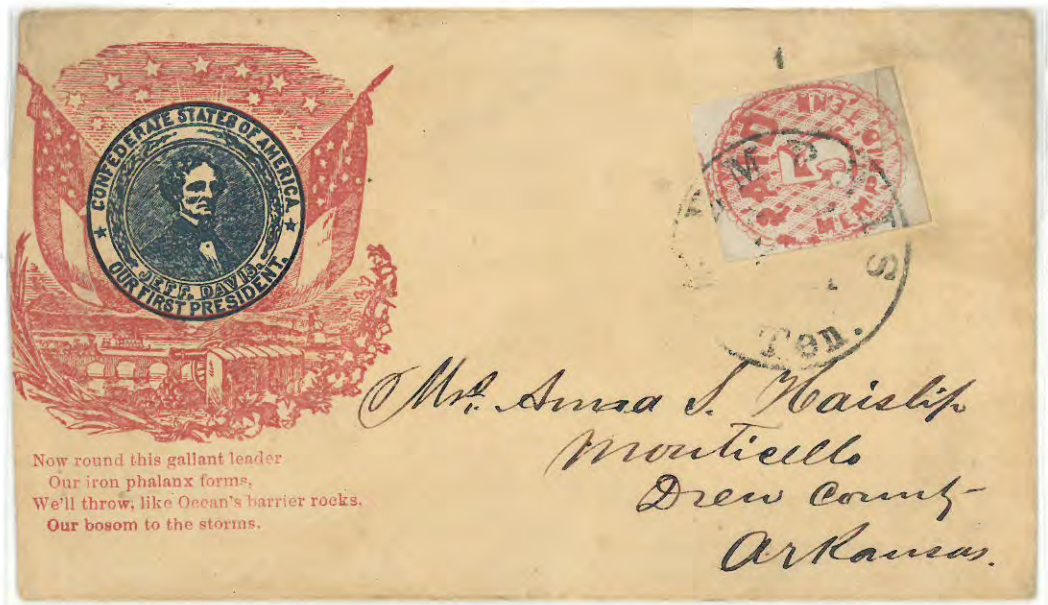 CONFEDERATE STATES OF AMERICA.
JEFF. DAVIS.
OUR FIRST PRESIDENT.
Now round this gallant leader
Our iron phalanx forms,
We'll throw, like Ocean's barrier rocks,
Our bosom to the storms.
PAID
5
MEMP
MEMPHIS
Ten.
Mrs. Anna S. Haislip
Monticello
Drew County
Arkansas.